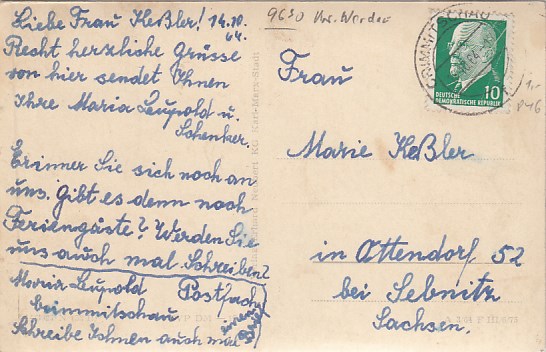 Liebe Frau Keßler! 14.10.
64.
Recht herzliche Grüsse
von hier sendet Ihnen
Ihre Maria Leupold u.
Schenker.
Erinner Sie sich noch an
uns. Gibt es denn noch
Feriengäste? Werden Sie
uns auch mal Schreiben?
Maria Leupold Postfach
Crimmitschau
Schreibe Ihnen auch mal
einen
Brief
9630
Werdau
CRIMMITSCHAU
DEUTSCHE
DEMOKRATISCHE REPUBLIK
10
Frau
Marie Keßler
in Ottendorf 52
bei Sebnitz
Sachsen.
KG Karl-Marx-Stadt